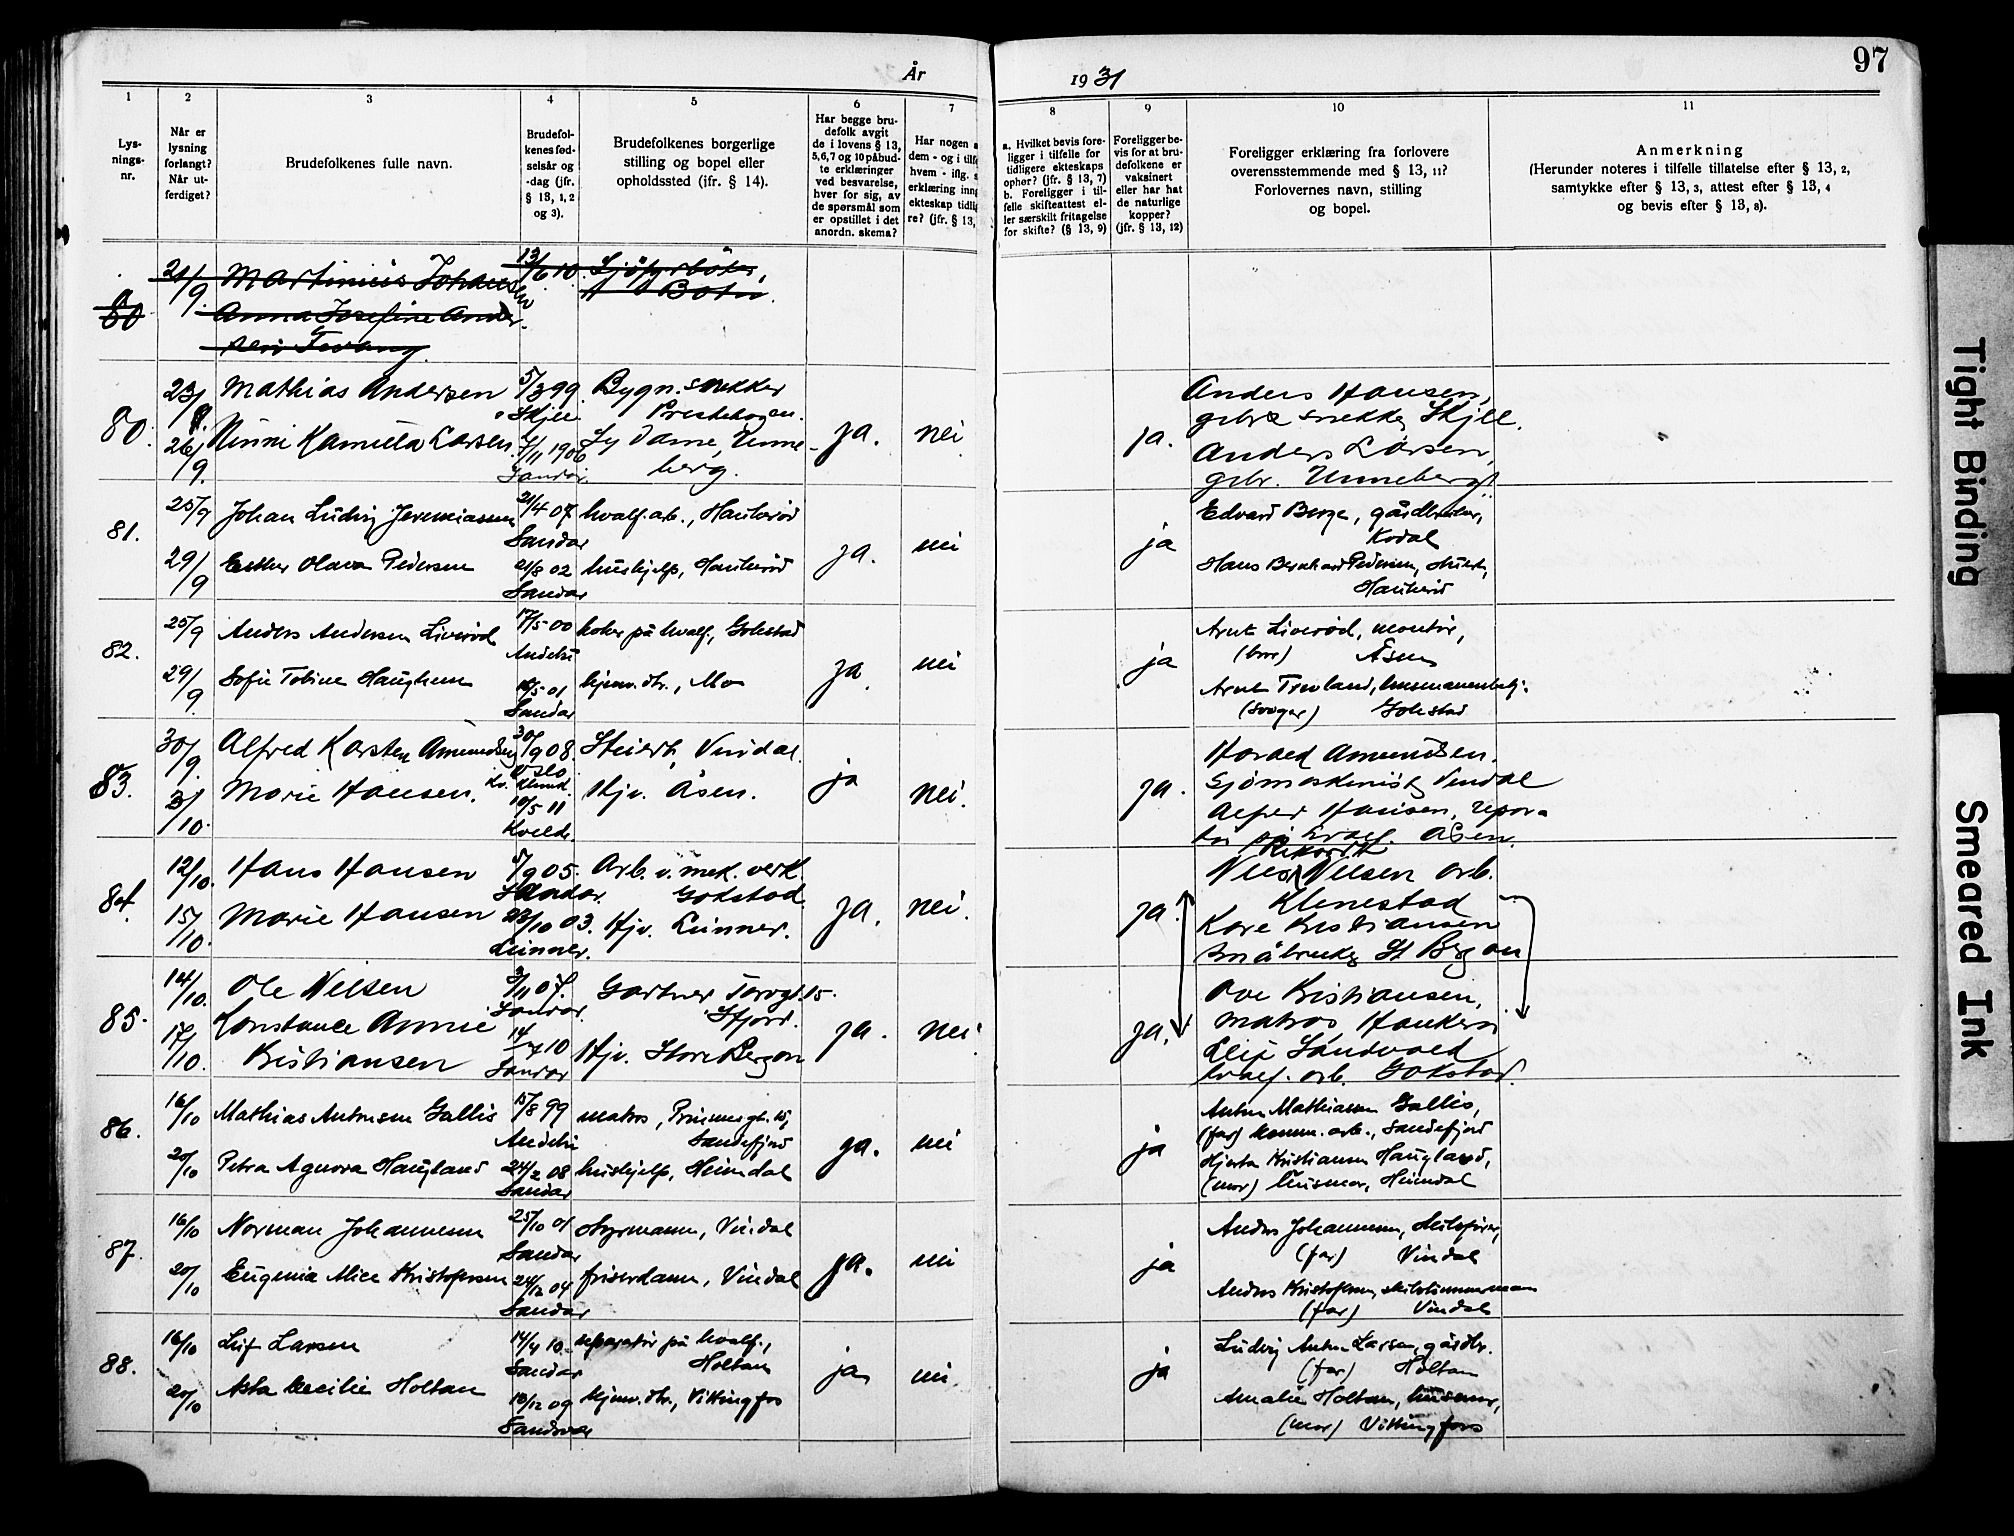 År
1931
97
1
2
3
4
5
6
7
8
9
10
11
Lys-
nings-
nr.
Når er
lysning
forlangt?
Når ut-
ferdiget?
Brudefolkenes fulle navn.
Brudefol-
kenes fød-
selsår og
-dag (jfr.
§ 13, 1, 2
og 3).
Brudefolkenes borgerlige
stilling og bopel eller
opholdssted (ifr. § 14).
Har begge bru-
defolk avgit
de i lovens § 13,
5, 6, 7 og 10 påbud-
te erklæringer
ved besvarelse,
hver for sig, av
de spørsmål som
er opstillet i det
anordn. skema?
Har nogen a
dem - og i tilfe
hvem - iflg. s
erklæring inng
ekteskap tidlig
re? (jfr. § 13,
a. Hvilket bevis fore-
ligger i tilfelle for
tidligere ekteskaps
ophør? (jfr. § 13, 7)
b. Foreligger i til-
felle skifteattest el-
ler særskilt fritagelse
for skifte? (§ 13, 9)
Foreligger be-
vis for at bru-
defolkene er
vaksinert
eller har hat
de naturlige
kopper?
(jfr. § 13, 12)
Foreligger erklæring fra forlovere
overensstemmende med § 13, 11?
Forlovernes navn, stilling
og bopel.
Anmerkning
(Herunder noteres i tilfelle tillatelse efter § 13, 2,
samtykke efter § 13, 3, attest efter § 13, 4
og bevis efter § 13, 8).
80
21/9. Martinius Johansen 13/6 10. Sjöfyrböter,
Botn.
Anna Josefine Ander-
sen Tvang.
80. 23/9 Mathias Andersen 5/3 99. Skjee Bygn. snekker
Prestehagen.
26/9. Ninni Kamilla Larsen. 7/11 1906 Sandar. Sy dame, Unne-
berg.
ja. nei ja.
Anders Hansen,
grbr. snekker Skjee.
Anders Larsen,
grbr. Unneberg.
81. 25/9 Johan Ludvig Jeremiassen 21/4 07 Sandar hvalf. arb., Haukerød
29/9 Esther Olava Pedersen 21/8 02 Sandar hushjelp, Haukerød
ja. nei ja
Edvard Berge, gårdbruker,
Kodal
Hans Bernhard Pedersen, stuert,
Haukerød
82. 25/9 Anders Andersen Liverød 17/5 00 Andebu koker på hvalf., Gokstad
29/9. Sofie Tobine Haughem 16/5 01 Sandar hjemv. dtr., Mo
ja. nei ja
Arnt Liverød, montør,
(bror) Åsen
Arnt Trevland,
(svoger) Gokstad
83. 30/9. Alfred Karsten Amundsen 30/9 08. Oslo Stuert, Vindal.
3/10. Marie Hansen. 10/5 11 Kvelde Hjv. Åsen.
ja nei. ja.
Harald Amundsen.
Sjömaskinist Vindal
Alfred Hansen, repara-
tør på hvalf. Åsen.
84. 12/10. Hans Hansen 5/9 05. Sandar. Arb. v. mek. verk.
Gokstad.
15/10. Marie Hansen 23/10 03. Lunner. Hjv. Lunner.
ja. nei. ja.
Rikard
Nils Nilsen arb.
Klinestad
Kare Kristiansen
småbruker St Bergan
85. 14/10. Ole Nilsen 3/11 07. Sandar. Gartner Torvgt. 15.
Sfjord.
17/10. Constance Annie
Kristiansen 14/4 10 Sandar Hjv. Store Bergan
ja. nei ja.
Ove Kristiansen,
matros, Haukerø
Leif Sandvold
hvalf. arb. Gokstad.
86. 16/10 Mathias Antonsen Gallis 15/8 99 Andebu matros, Prinsensgt. 15,
Sandefjord
20/10 Petra Agnora Haugland 24/2 08 Sandar hushjelp, Heimdal
ja. nei ja
Anton Mathiassen Gallis,
(far) komm. arb., Sandefjord
Hjerta Kristiansen Haugland,
(mor) husmor, Heimdal
87. 16/10 Norman Johannesen 25/10 01 Sandar styrmann, Vindal
20/10 Eugenia Alice Kristofersen 24/12 04 Sandar friserdame, Vindal
ja. nei ja
Anders Johannesen, skibsfører,
(far) Vindal
Anders Kristofersen, skibstimmerman
(far) Vindal
88. 16/10 Leif Larsen 14/4 10. Sandar reparatør på hvalf.,
Holtan
20/10 Asta Cecilie Holtan 10/12 09 Sandar hjemv. dtr., Vikingfoss
ja nei ja
Ludvig Anton Larsen, gårdbr.
(far) Holtan
Amalie Holtan, husmor,
(mor) Vikingfoss
Tight Binding
Smeared Ink